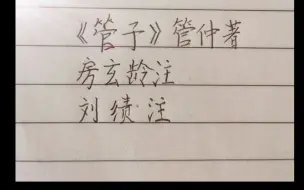 《管子》管仲著
房玄龄注
刘绩注